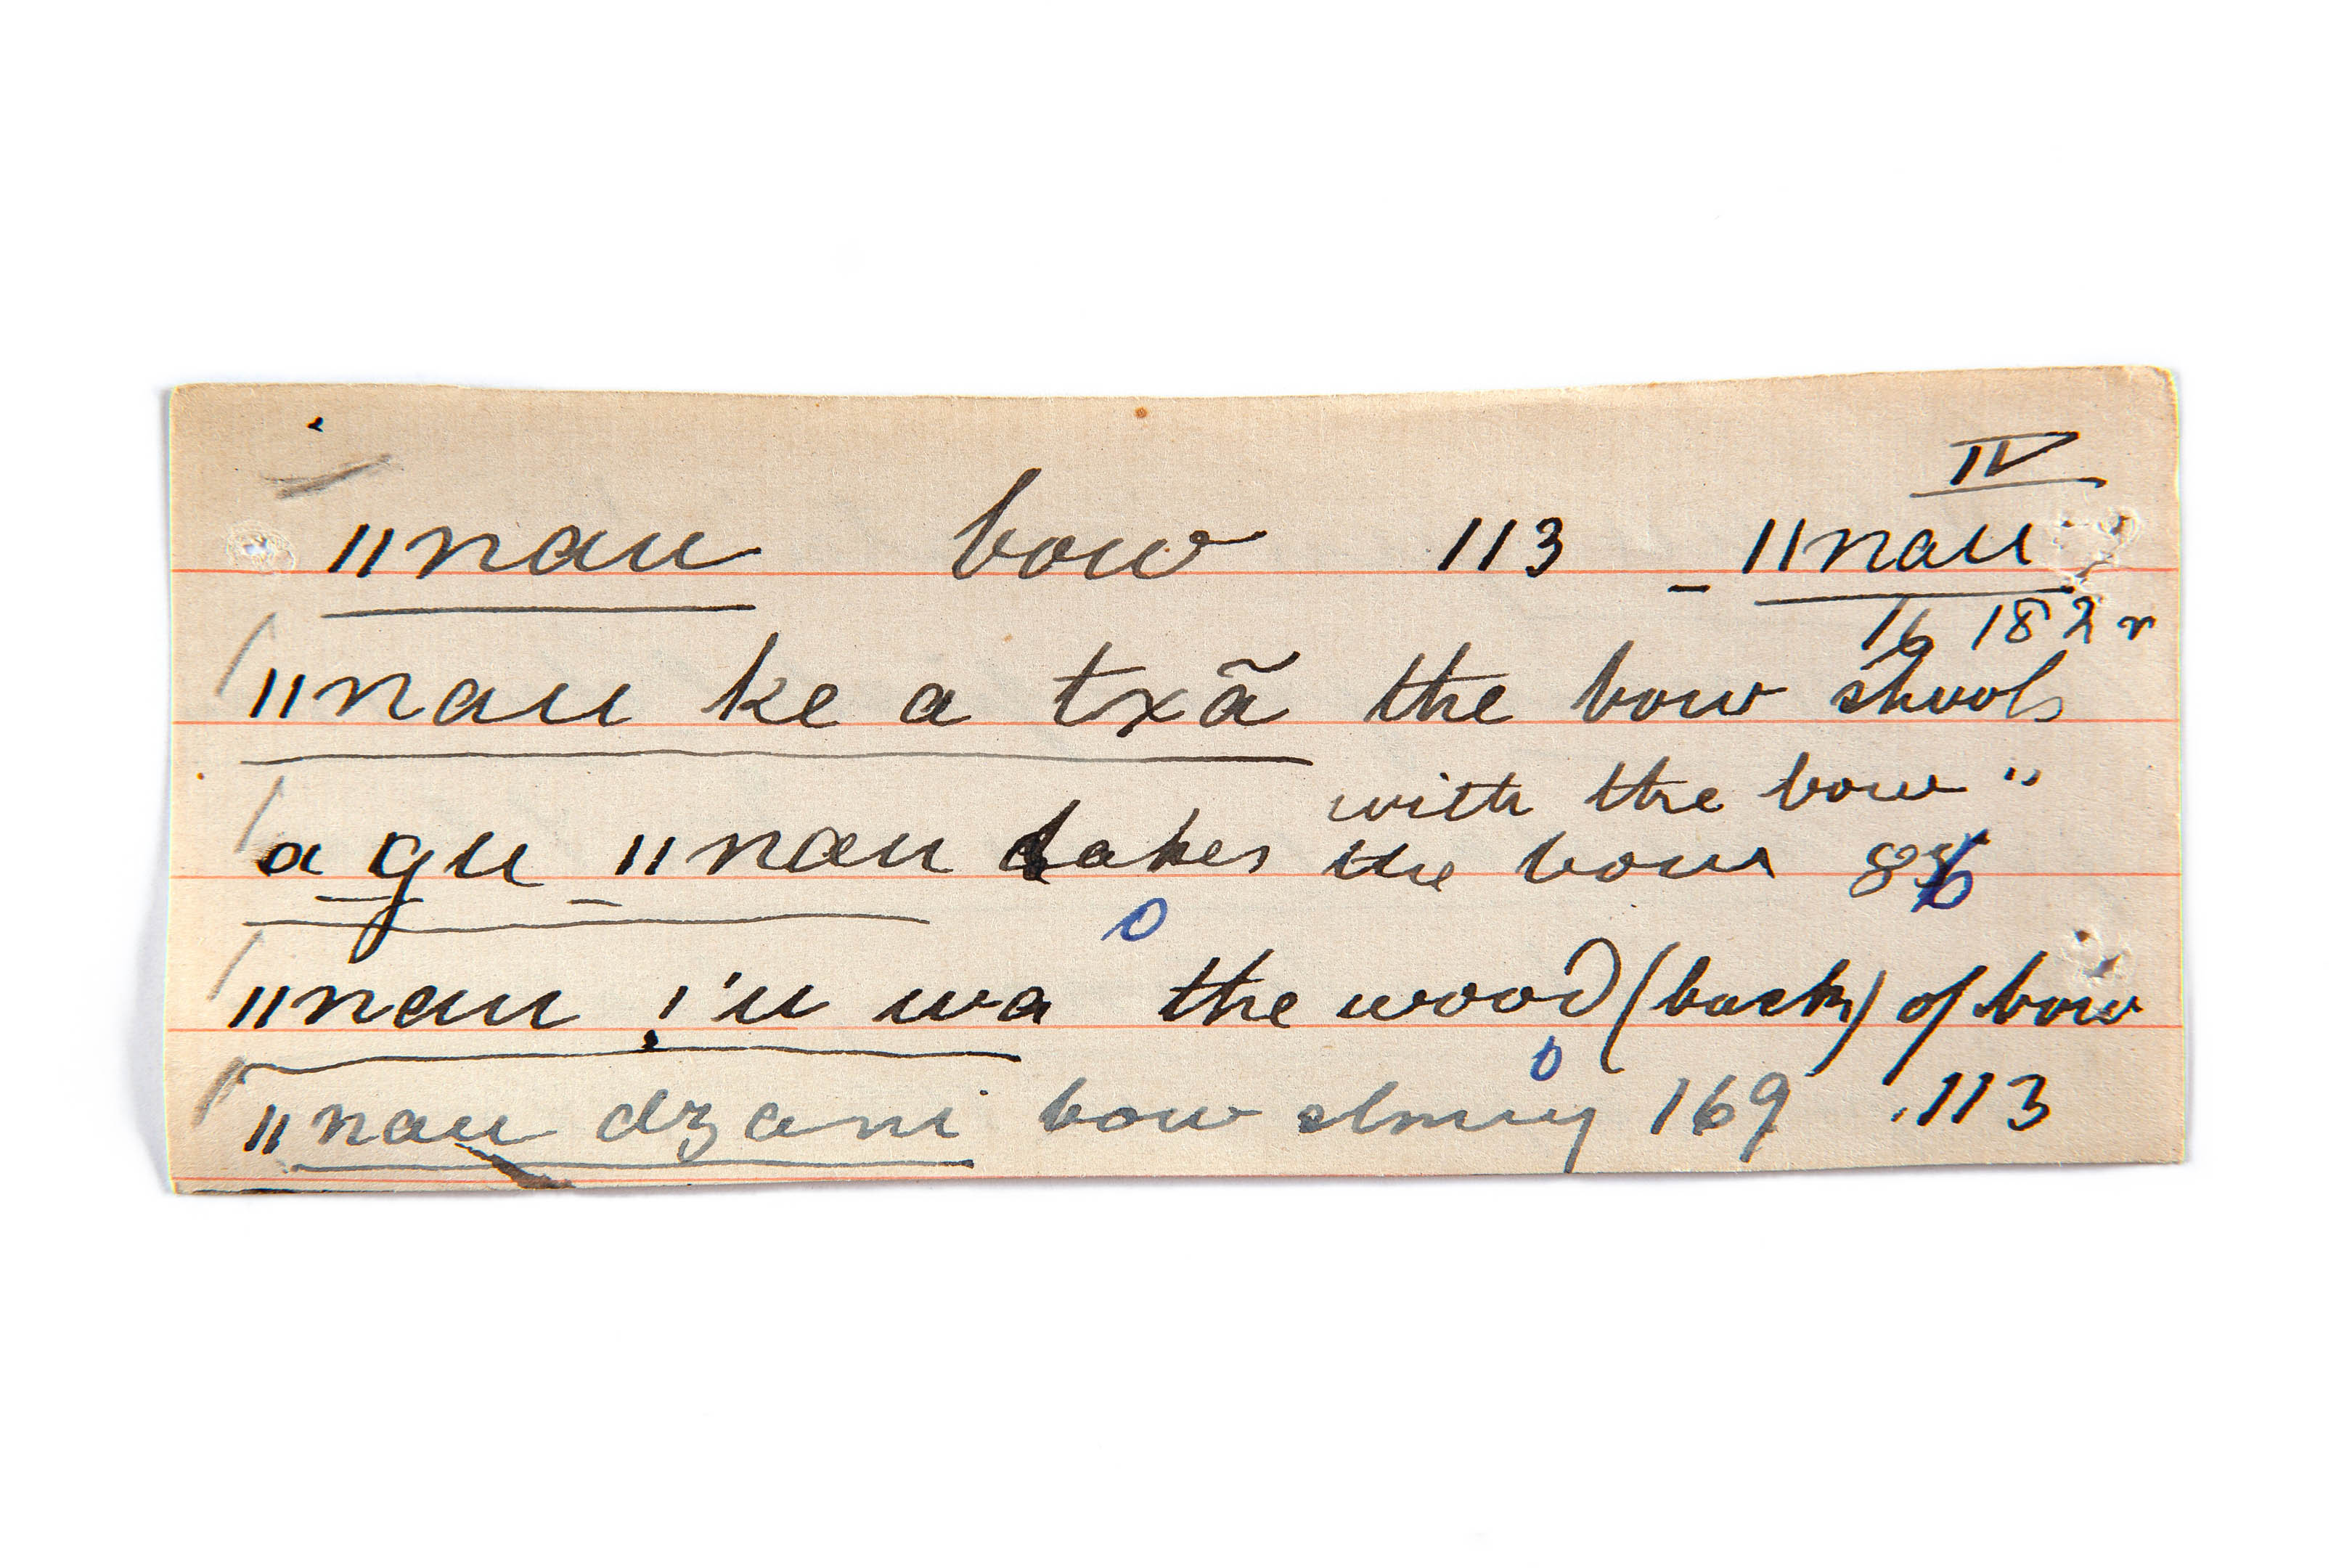 IV
ǁnau bow 113 - ǁnau
16 182 r
ǁnau ke a txã the bow shoots
with the bow "
a gu ǁnau takes the bow
ǁnau !'u wa the wood (back) of bow
ǁnau dzani bow string 169 .113